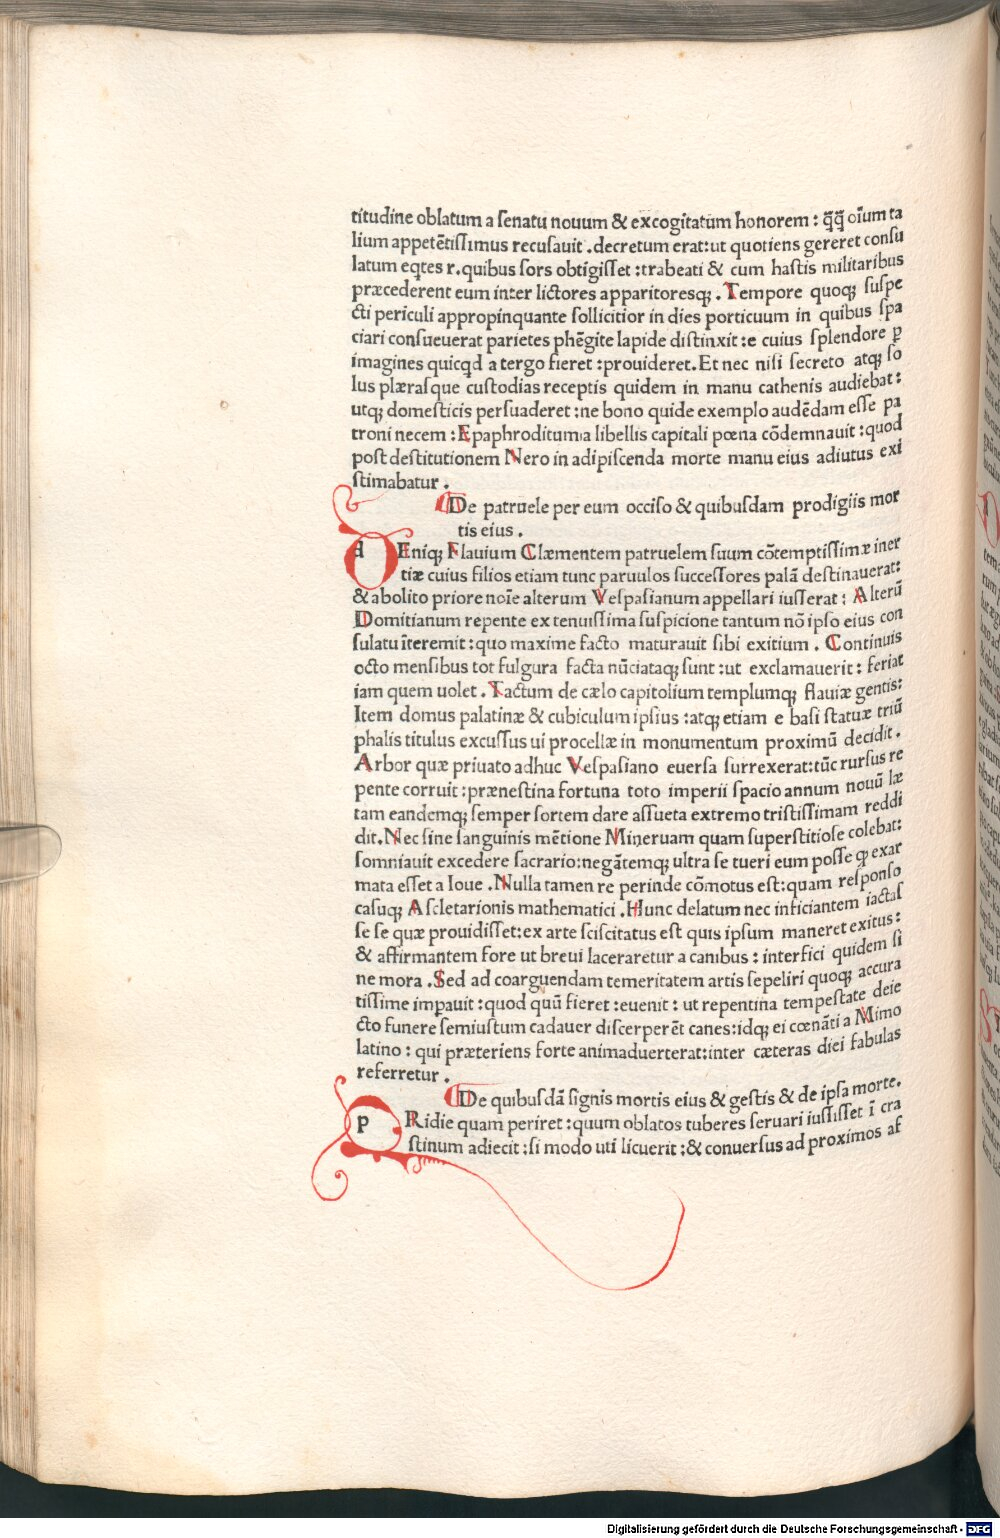 titudine oblatum a ſenatu nouum & excogitatum honorem : q̃q̃ oı̃um ta
lium appetẽtiſſimus recuſauit . decretum erat:ut quotiens gereret conſu
latum eqtes r. quibus ſors obtigiſſet :trabeati & cum haſtis militaribus
præcederent eum inter lictores apparitoresqꝫ . Tempore quoqꝫ ſuſpe
cti periculi appropinquante ſollicitior in dies porticuum in quibus ſpa
ciari conſueuerat parietes phẽgite lapide diſtinxit :e cuius ſplendore ꝑ
imagines quicqd a tergo fieret :prouideret. Et nec niſi ſecreto atqꝫ ſo
lus plæraſque cuſtodias receptis quidem in manu cathenis audiebat :
utqꝫ domeſticis perſuaderet :ne bono quide exemplo audẽdam eſſe pa
troni necem : Epaphroditum a libellis capitali pœna cõdemnauit :quod
poſt deſtitutionem Nero in adipiſcenda morte manu eius adiutus exi
ſtimabatur .
De patruele per eum occiſo & quibuſdam prodigiis mor
tis eius .
d ENiqꝫ Flauium Clæmentem patruelem ſuum cõtemptiſſimæ iner
tiæ cuius filios etiam tunc paruulos ſucceſſores palã deſtinauerat:
& abolito priore noı̃e alterum Veſpaſianum appellari iuſſerat : Alterũ
Domitianum repente ex tenuiſſima ſuſpicione tantum nõ ipſo eius con
ſulatu ı̃teremit : quo maxime facto maturauit ſibi exitium . Continuis
octo menſibus tot fulgura facta nũciataqꝫ ſunt :ut exclamauerit : feriat
iam quem uolet . Tactum de cælo capitolium templumqꝫ flauiæ gentis:
Item domus palatinæ & cubiculum ipſius :atqꝫ etiam e baſi ſtatuæ triũ
phalis titulus excuſſus ui procellæ in monumentum proximũ decidit .
Arbor quæ priuato adhuc Veſpaſiano euerſa ſurrexerat:tũc rurſus re
pente corruit : præneſtina fortuna toto imperii ſpacio annum nouũ læ
tam eandemqꝫ ſemper ſortem dare aſſueta extremo triſtiſſimam reddi
dit. Nec ſine ſanguinis mẽtione Mineruam quam ſuperſtitioſe colebat:
ſomniauit excedere ſacrario:negãtemqꝫ ultra ſe tueri eum poſſe ꝙ exar
mata eſſet a Ioue . Nulla tamen re perinde cõmotus eſt: quam reſponſo
caſuqꝫ Aſcletarionis mathematici . Hunc delatum nec inficiantem iactaſ
ſe ſe quæ prouidiſſet: ex arte ſciſcitatus eſt quis ipſum maneret exitus :
& affirmantem fore ut breui laceraretur a canibus : interfici quidem ſi
ne mora . Sed ad coarguendam temeritatem artis ſepeliri quoqꝫ accura
tiſſime imꝑauit : quod quũ fieret :euenit : ut repentina tempeſtate deie
cto funere ſemiuſtum cadauer diſcerperẽt canes:idqꝫ ei cœnãti a Mimo
latino : qui præteriens forte animaduerterat:inter cæteras diei fabulas
referretur .
De quibuſdã ſignis mortis eius & geſtis & de ipſa morte.
p RIdie quam periret : quum oblatos tuberes ſeruari iuſſiſſet ı̃ cra
ſtinum adiecit :ſi modo uti licuerit :& conuerſus ad proximos aſ
Digitalisierung gefördert durch die Deutsche Forschungsgemeinschaft - DFG